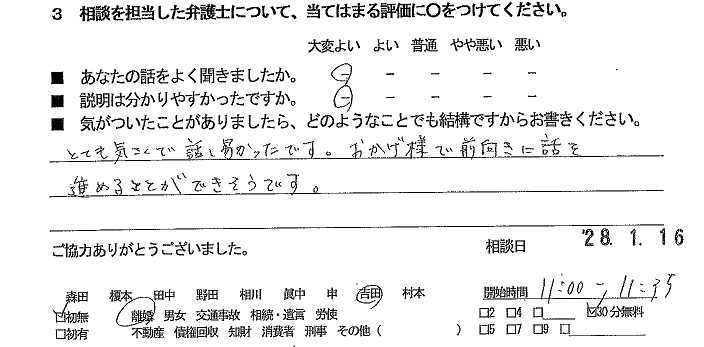 3 相談を担当した弁護士について、当てはまる評価に〇をつけてください。
大変よい よい 普通 やや悪い 悪い
■ あなたの話をよく聞きましたか。 － － － － －
■ 説明は分かりやすかったですか。 － － － － －
■ 気がついたことがありましたら、どのようなことでも結構ですからお書きください。
とても気さくで話し易かったです。おかげ様で前向きに話を
進めることができそうです。
ご協力ありがとうございました。 相談日 '28. 1. 16
森田 榎本 田中 野田 相川 眞中 申 吉田 村本 開始時間 11:00 ~ 11:35
☑初無 離婚 男女 交通事故 相続・遺言 労使 □2 □4 □ ☑30分無料
□初有 不動産 債権回収 知財 消費者 刑事 その他( ) □5 □7 □9 □